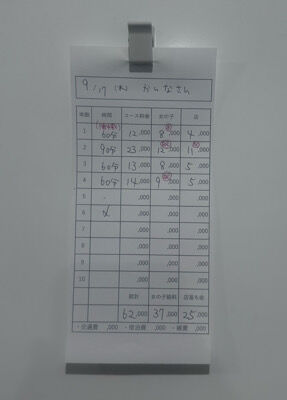 9/17 (木) かんなさん
本数 時間 コース料金 女の子 店
1 60分 12,000 8,000 4,000
2 90分 23,000 12,000 11,000
3 60分 13,000 8,000 5,000
4 60分 14,000 9,000 5,000
5 ,000 ,000 ,000
6 ,000 ,000 ,000
7 ,000 ,000 ,000
8 ,000 ,000 ,000
9 ,000 ,000 ,000
10 ,000 ,000 ,000
総計 女の子給料 店落ち金
62,000 37,000 25,000
・交通費 ,000 ・宿泊費 ,000 ・雑費 ,000